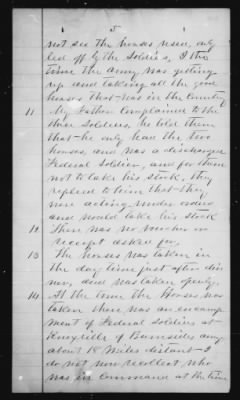 5
not see the horses used, only
led off by the Soldiers, & this
time the army was getting
up and taking all the good
horses that was in the Country
11 My Father complained to the
Soldiers, he told them
that he only had the two
horses, and was a discharged
Federal Soldier, and for them
not to take his stock, they
replied to him that they
were acting under orders
and would take his stock
12 There was no voucher or
receipt asked for,
13 The horses was taken in
the day time just after din
ner, and was taken openly.
14 At the time the Horses was
taken there was an encamp
ment of Federal soldiers at
Knoxville of Burnsides army
about 18 Miles distant I
do not now recollect who
was in command at the time